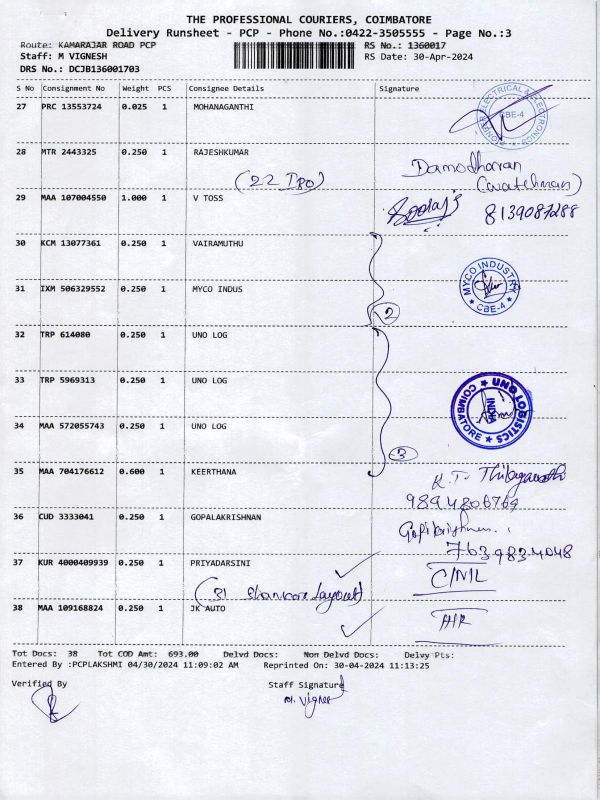 THE PROFESSIONAL COURIERS, COIMBATORE
Delivery Runsheet - PCP - Phone No.:0422-3505555 - Page No.:3
Route: KAMARAJAR ROAD PCP RS No.: 1360017
Staff: M VIGNESH RS Date: 30-Apr-2024
DRS No.: DCJB136001703
S No Consignment No Weight PCS Consignee Details Signature
27 PRC 13553724 0.025 1 MOHANAGANTHI
ELECTRICAL & ELECTRONICS CBE-4
28 MTR 2443325 0.250 1 RAJESHKUMAR
Damodharan
(22 IPO) (watchman)
29 MAA 107004550 1.000 1 V TOSS
8139087288
30 KCM 13077361 0.250 1 VAIRAMUTHU
31 IXM 506329552 0.250 1 MYCO INDUS
MYCO INDUSTRY CBE-4
2
32 TRP 614080 0.250 1 UNO LOG
33 TRP 5969313 0.250 1 UNO LOG
UNO LOGISTICS COIMBATORE INDIA
34 MAA 572055743 0.250 1 UNO LOG
3
35 MAA 704176612 0.600 1 KEERTHANA
K.T.
9894806769
36 CUD 3333041 0.250 1 GOPALAKRISHNAN
7639834048
37 KUR 4000409939 0.250 1 PRIYADARSINI
C/NIL
(31 Layout)
38 MAA 109168824 0.250 1 JK AUTO
Tot Docs: 38 Tot COD Amt: 693.00 Delvd Docs: Non Delvd Docs: Delvy Pts:
Entered By :PCPLAKSHMI 04/30/2024 11:09:02 AM Reprinted On: 30-04-2024 11:13:25
Verified By Staff Signature
M. Vignesh